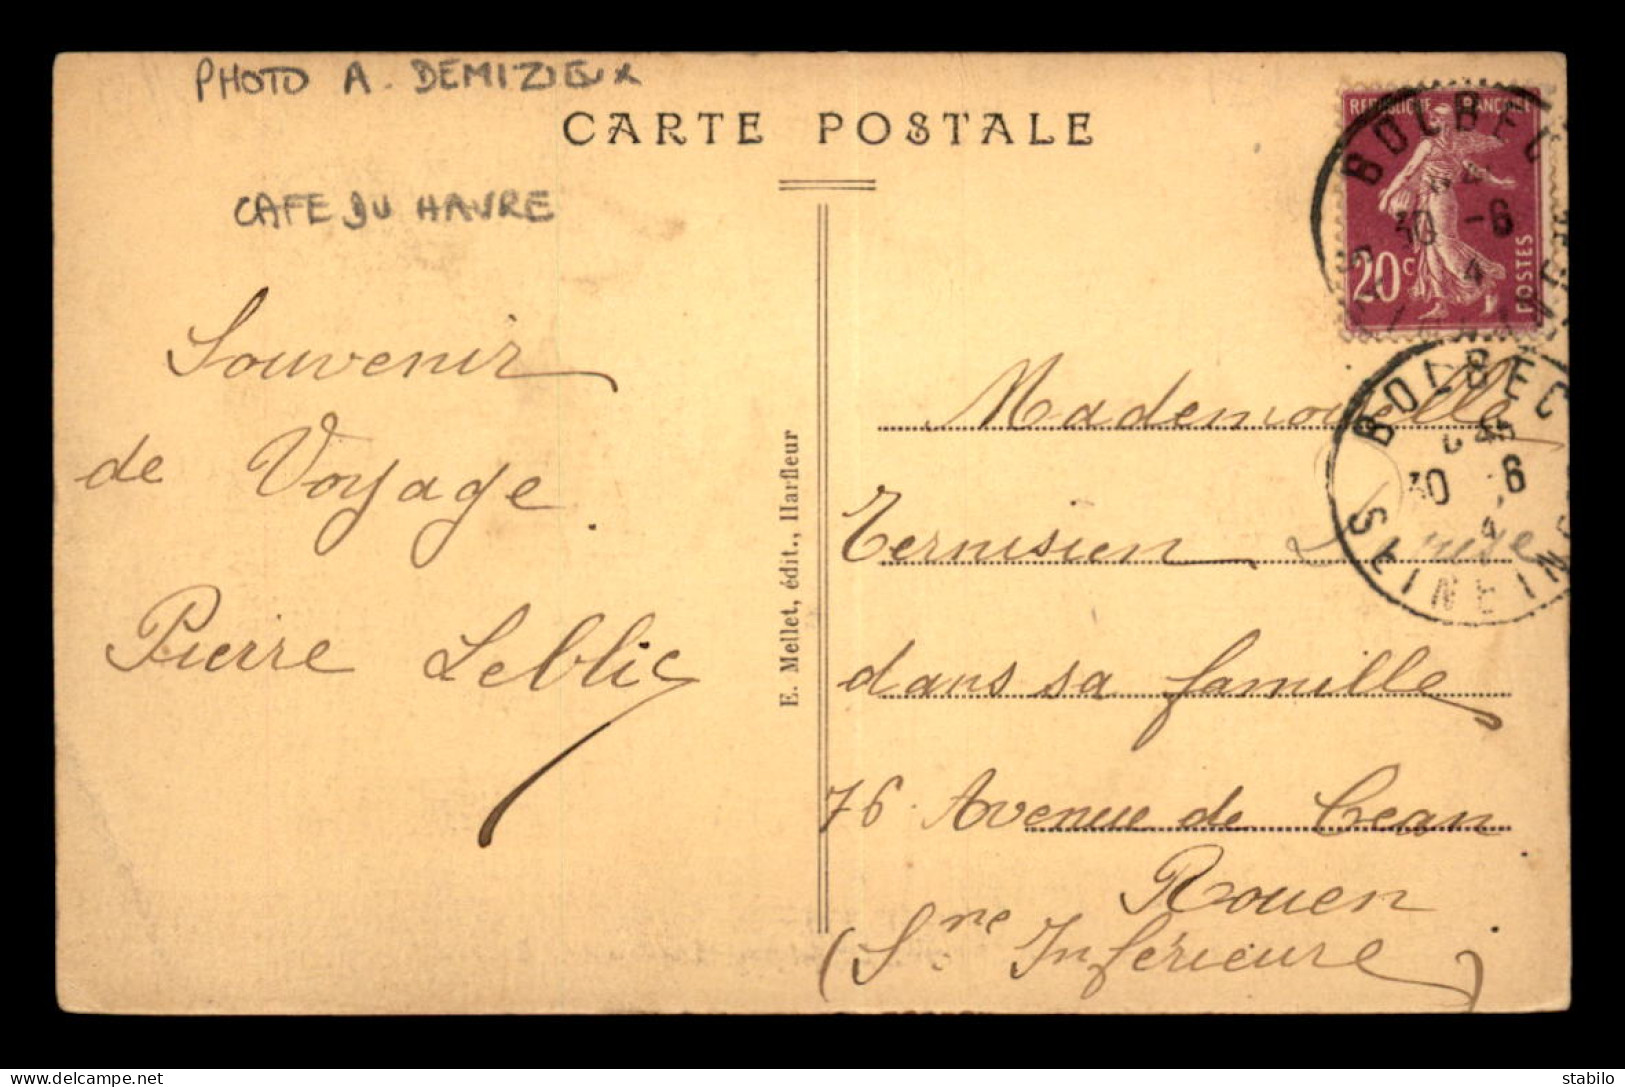 PHOTO A. DEMIZIEUX
CARTE POSTALE
CAFE DU HAVRE
Souvenir
de Voyage.
Pierre Leblic
E. Mellet, édit., Harfleur
REPUBLIQUE FRANÇAISE
20c
POSTES
BOLBEC
30 -6
4
BOLBEC
30 6
4
SEINE IN
Mademoiselle
Ternisien
dans sa famille
76 Avenue de Caen
Rouen
(Sne Inférieure)
www.delcampe.net
stabilo